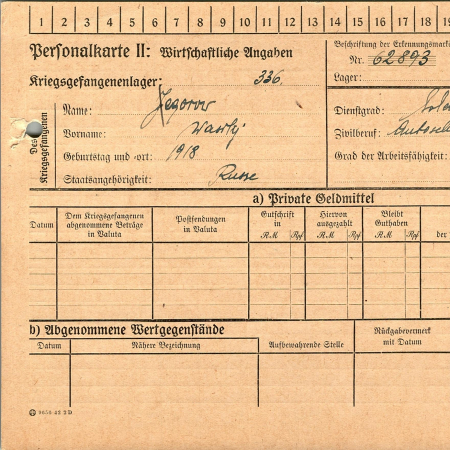 1 2 3 4 5 6 7 8 9 10 11 12 13 14 15 16 17 18 19
Personalkarte II: Wirtschaftliche Angaben
Beschriftung der Erkennungsmarke
Nr. 62893
Kriegsgefangenenlager: 336.
Lager:
Des Kriegsgefangenen
Name: Jegorow
Dienstgrad:
Vorname: Wasilij
Zivilberuf:
Geburtstag und -ort: 1918
Grad der Arbeitsfähigkeit:
Staatsangehörigkeit: Russe
a) Private Geldmittel
Datum
Dem Kriegsgefangenen abgenommene Beträge in Valuta
Postsendungen in Valuta
Gutschrift in
RM Rpf
Hiervon ausgezahlt
RM Rpf
Bleibt Guthaben
RM Rpf
der
b) Abgenommene Wertgegenstände
Datum
Nähere Bezeichnung
Aufbewahrende Stelle
Rückgabevermerk mit Datum